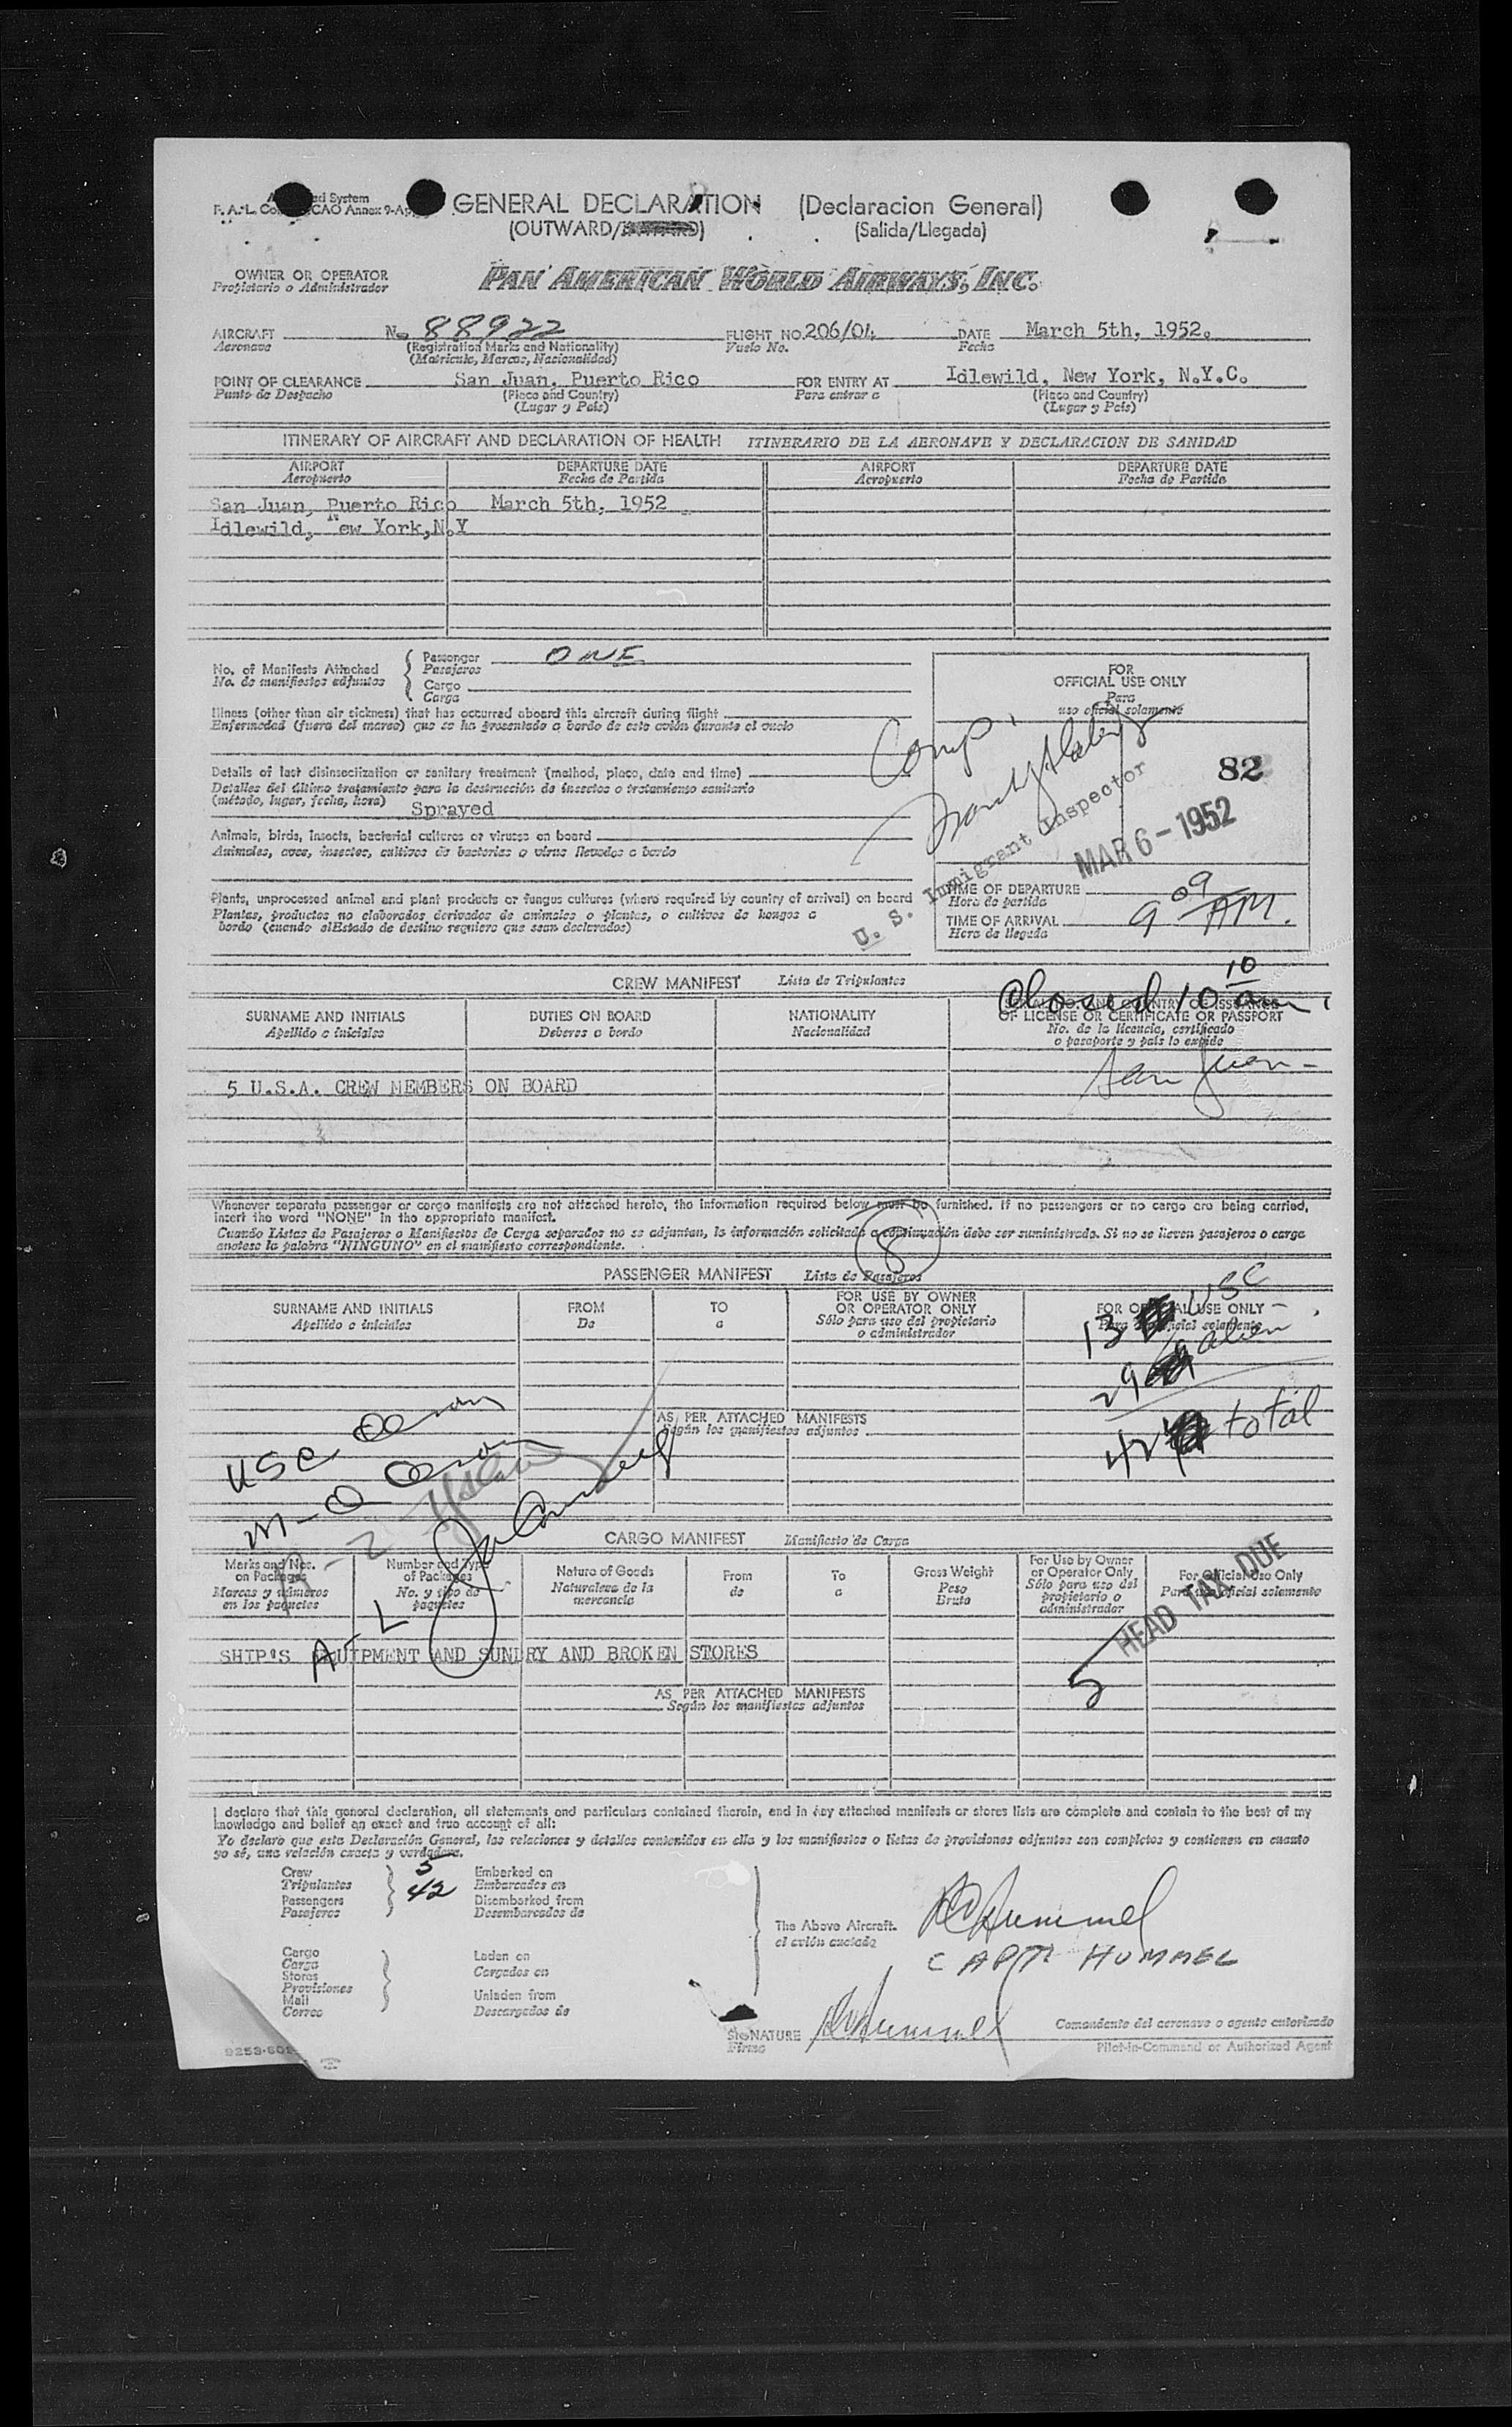 GENERAL DECLARATION (Declaracion General)
(OUTWARD/INWARD) (Salida/Llegada)
OWNER OR OPERATOR
Propietario o Administrador
PAN AMERICAN WORLD AIRWAYS, INC.
AIRCRAFT N- 88922 FLIGHT NO. 206/04 DATE March 5th, 1952.
Aeronave (Registration Marks and Nationality) Vuelo No. Fecha
(Matricula, Marcas, Nacionalidad)
POINT OF CLEARANCE San Juan, Puerto Rico FOR ENTRY AT Idlewild, New York, N.Y.C.
Punto de Despacho (Place and Country) Para entrar a (Place and Country)
(Lugar y Pais) (Lugar y Pais)
ITINERARY OF AIRCRAFT AND DECLARATION OF HEALTH ITINERARIO DE LA AERONAVE Y DECLARACION DE SANIDAD
AIRPORT DEPARTURE DATE AIRPORT DEPARTURE DATE
Aeropuerto Fecha de Partida Aeropuerto Fecha de Partida
San Juan, Puerto Rico March 5th, 1952
Idlewild, New York,N.Y
No. of Manifests Attached
No. de manifiestos adjuntos
Passenger ONE
Pasajeros
Cargo
Carga
Illness (other than air sickness) that has occurred aboard this aircraft during flight
Enfermedad (fuera del mareo) que se ha presentado a bordo de este avión durante el vuelo
Details of last disinsectization or sanitary treatment (method, place, date and time)
Detalles del último tratamiento para la destrucción de insectos o tratamiento sanitario
(método, lugar, fecha, hora) Sprayed
Animals, birds, insects, bacterial cultures or viruses on board
Animales, aves, insectos, cultivos de bacterias o virus llevados a bordo
Plants, unprocessed animal and plant products or fungus cultures (where required by country of arrival) on board
Plantas, productos no elaborados derivados de animales o plantas, o cultivos de hongos a
bordo (cuando elEstado de destino requiere que sean declarados)
FOR
OFFICIAL USE ONLY
Para
uso oficial solamente
Comp.
82
U. S. Immigrant Inspector
MAR 6 - 1952
TIME OF DEPARTURE
Hora de partida
TIME OF ARRIVAL 9 09 AM.
Hora de llegada
CREW MANIFEST Lista de Tripulantes
Closed 10 10 am.
SURNAME AND INITIALS DUTIES ON BOARD NATIONALITY OF LICENSE OR CERTIFICATE OR PASSPORT
Apellido e iniciales Deberes a bordo Nacionalidad No. de la licencia, certificado
o pasaporte y país lo expide
San Juan-
5 U.S.A. CREW MEMBERS ON BOARD
Whenever separate passenger or cargo manifests are not attached hereto, the information required below must be furnished. If no passengers or no cargo are being carried,
insert the word "NONE" in the appropriate manifest.
Cuando Listas de Pasajeros o Manifiestos de Carga separados no se adjuntan, la información solicitada a continuación debe ser suministrada. Si no se llevan pasajeros o carga
anótese la palabra "NINGUNO" en el manifiesto correspondiente.
8
PASSENGER MANIFEST Lista de Pasajeros
SURNAME AND INITIALS FROM TO FOR USE BY OWNER FOR OFFICIAL USE ONLY
Apellido e iniciales De a OR OPERATOR ONLY Para uso oficial solamente
Sólo para uso del propietario
o administrador
13 USC
29 alien
42 total
AS PER ATTACHED MANIFESTS
Según los manifiestos adjuntos
USC
CARGO MANIFEST Manifiesto de Carga
Marks and Nos.
on Packages
Marcas y números
en los paquetes
Number and Type
of Packages
No. y tipo de
paquetes
Nature of Goods
Naturaleza de la
mercancía
From
de
To
a
Gross Weight
Peso
Bruto
For Use by Owner
or Operator Only
Sólo para uso del
propietario o
administrador
For Official Use Only
Para uso oficial solamente
5 HEAD TAX DUE
SHIP'S EQUIPMENT AND SUNDRY AND BROKEN STORES
AS PER ATTACHED MANIFESTS
Según los manifiestos adjuntos
I declare that this general declaration, all statements and particulars contained therein, and in any attached manifests or stores lists are complete and contain to the best of my
knowledge and belief an exact and true account of all:
Yo declaro que esta Declaración General, las relaciones y detalles contenidos en ella y los manifiestos o listas de provisiones adjuntos son completos y contienen en cuanto
yo sé, una relación exacta y verdadera.
Crew 5 Embarked on
Tripulantes Embarcados en
Passengers 42 Disembarked from
Pasajeros Desembarcados de
Cargo
Carga
Stores
Provisiones
Mail
Correo
Laden on
Cargados en
Unladen from
Descargados de
The Above Aircraft.
el avión anotado
CAPT. HUMMEL
SIGNATURE
Firma
Comandante del aeronave o agente autorizado
Pilot-in-Command or Authorized Agent